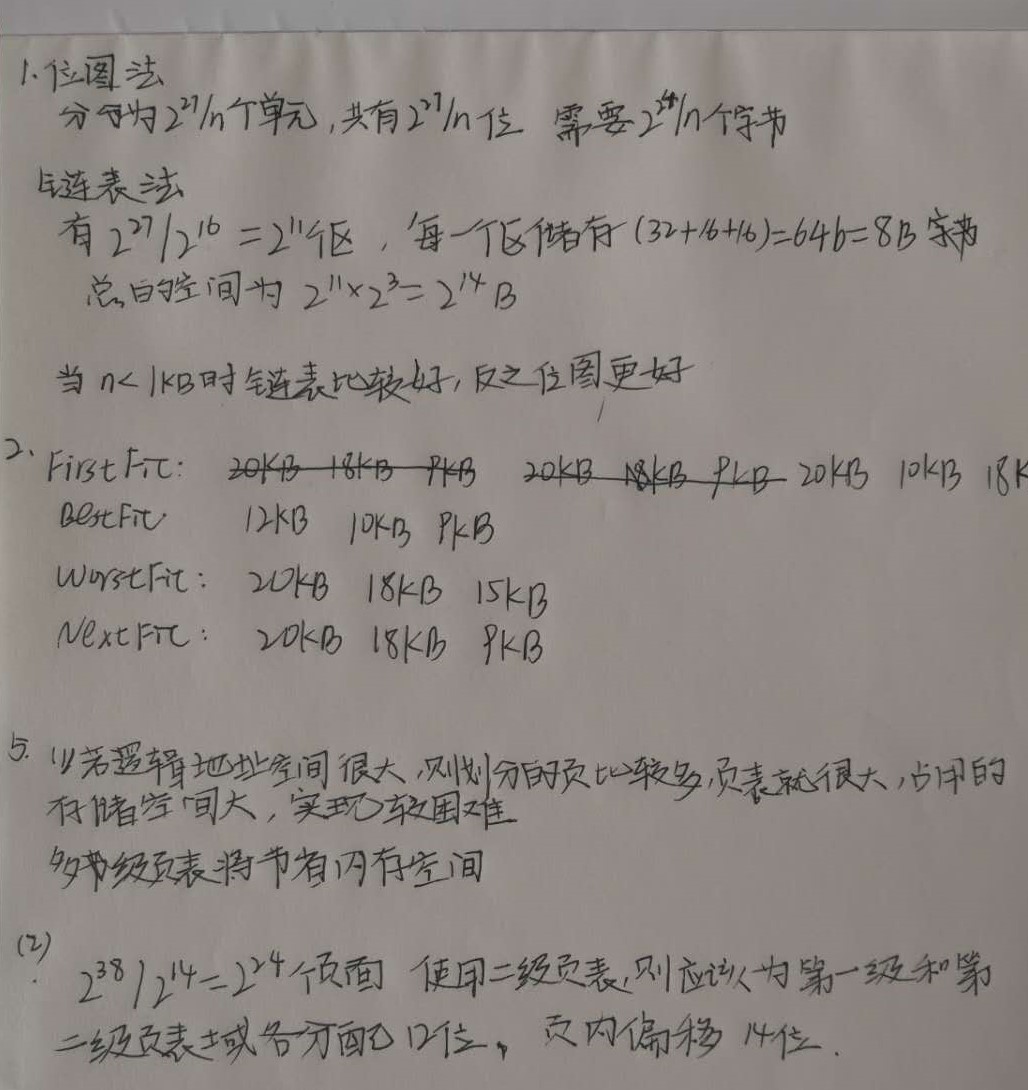 1. 位图法
分为2²⁷/n个单元,共有2²⁷/n位 需要2²⁴/n个字节
链表法
有 2²⁷/2¹⁶ = 2¹¹个区 , 每一个区储存 (32+16+16)=64b=8B 字节
总的空间为 2¹¹×2³= 2¹⁴ B
当 n< 1KB时 链表比较好, 反之位图更好
2. First Fit: 20KB 18KB 9KB 20KB 18KB 9KB 20KB 10KB 18K
Best Fit 12KB 10KB 9KB
Worst Fit: 20KB 18KB 15KB
Next Fit: 20KB 18KB 9KB
5. (1) 若逻辑地址空间很大,则划分的页比较多,页表就很大,占用的
存储空间大, 实现较困难
多级页表将节省内存空间
(2) 2³⁸/2¹⁴=2²⁴个页面 使用二级页表,则应该为第一级和第
二级页表域各分配12位, 页内偏移 14位.